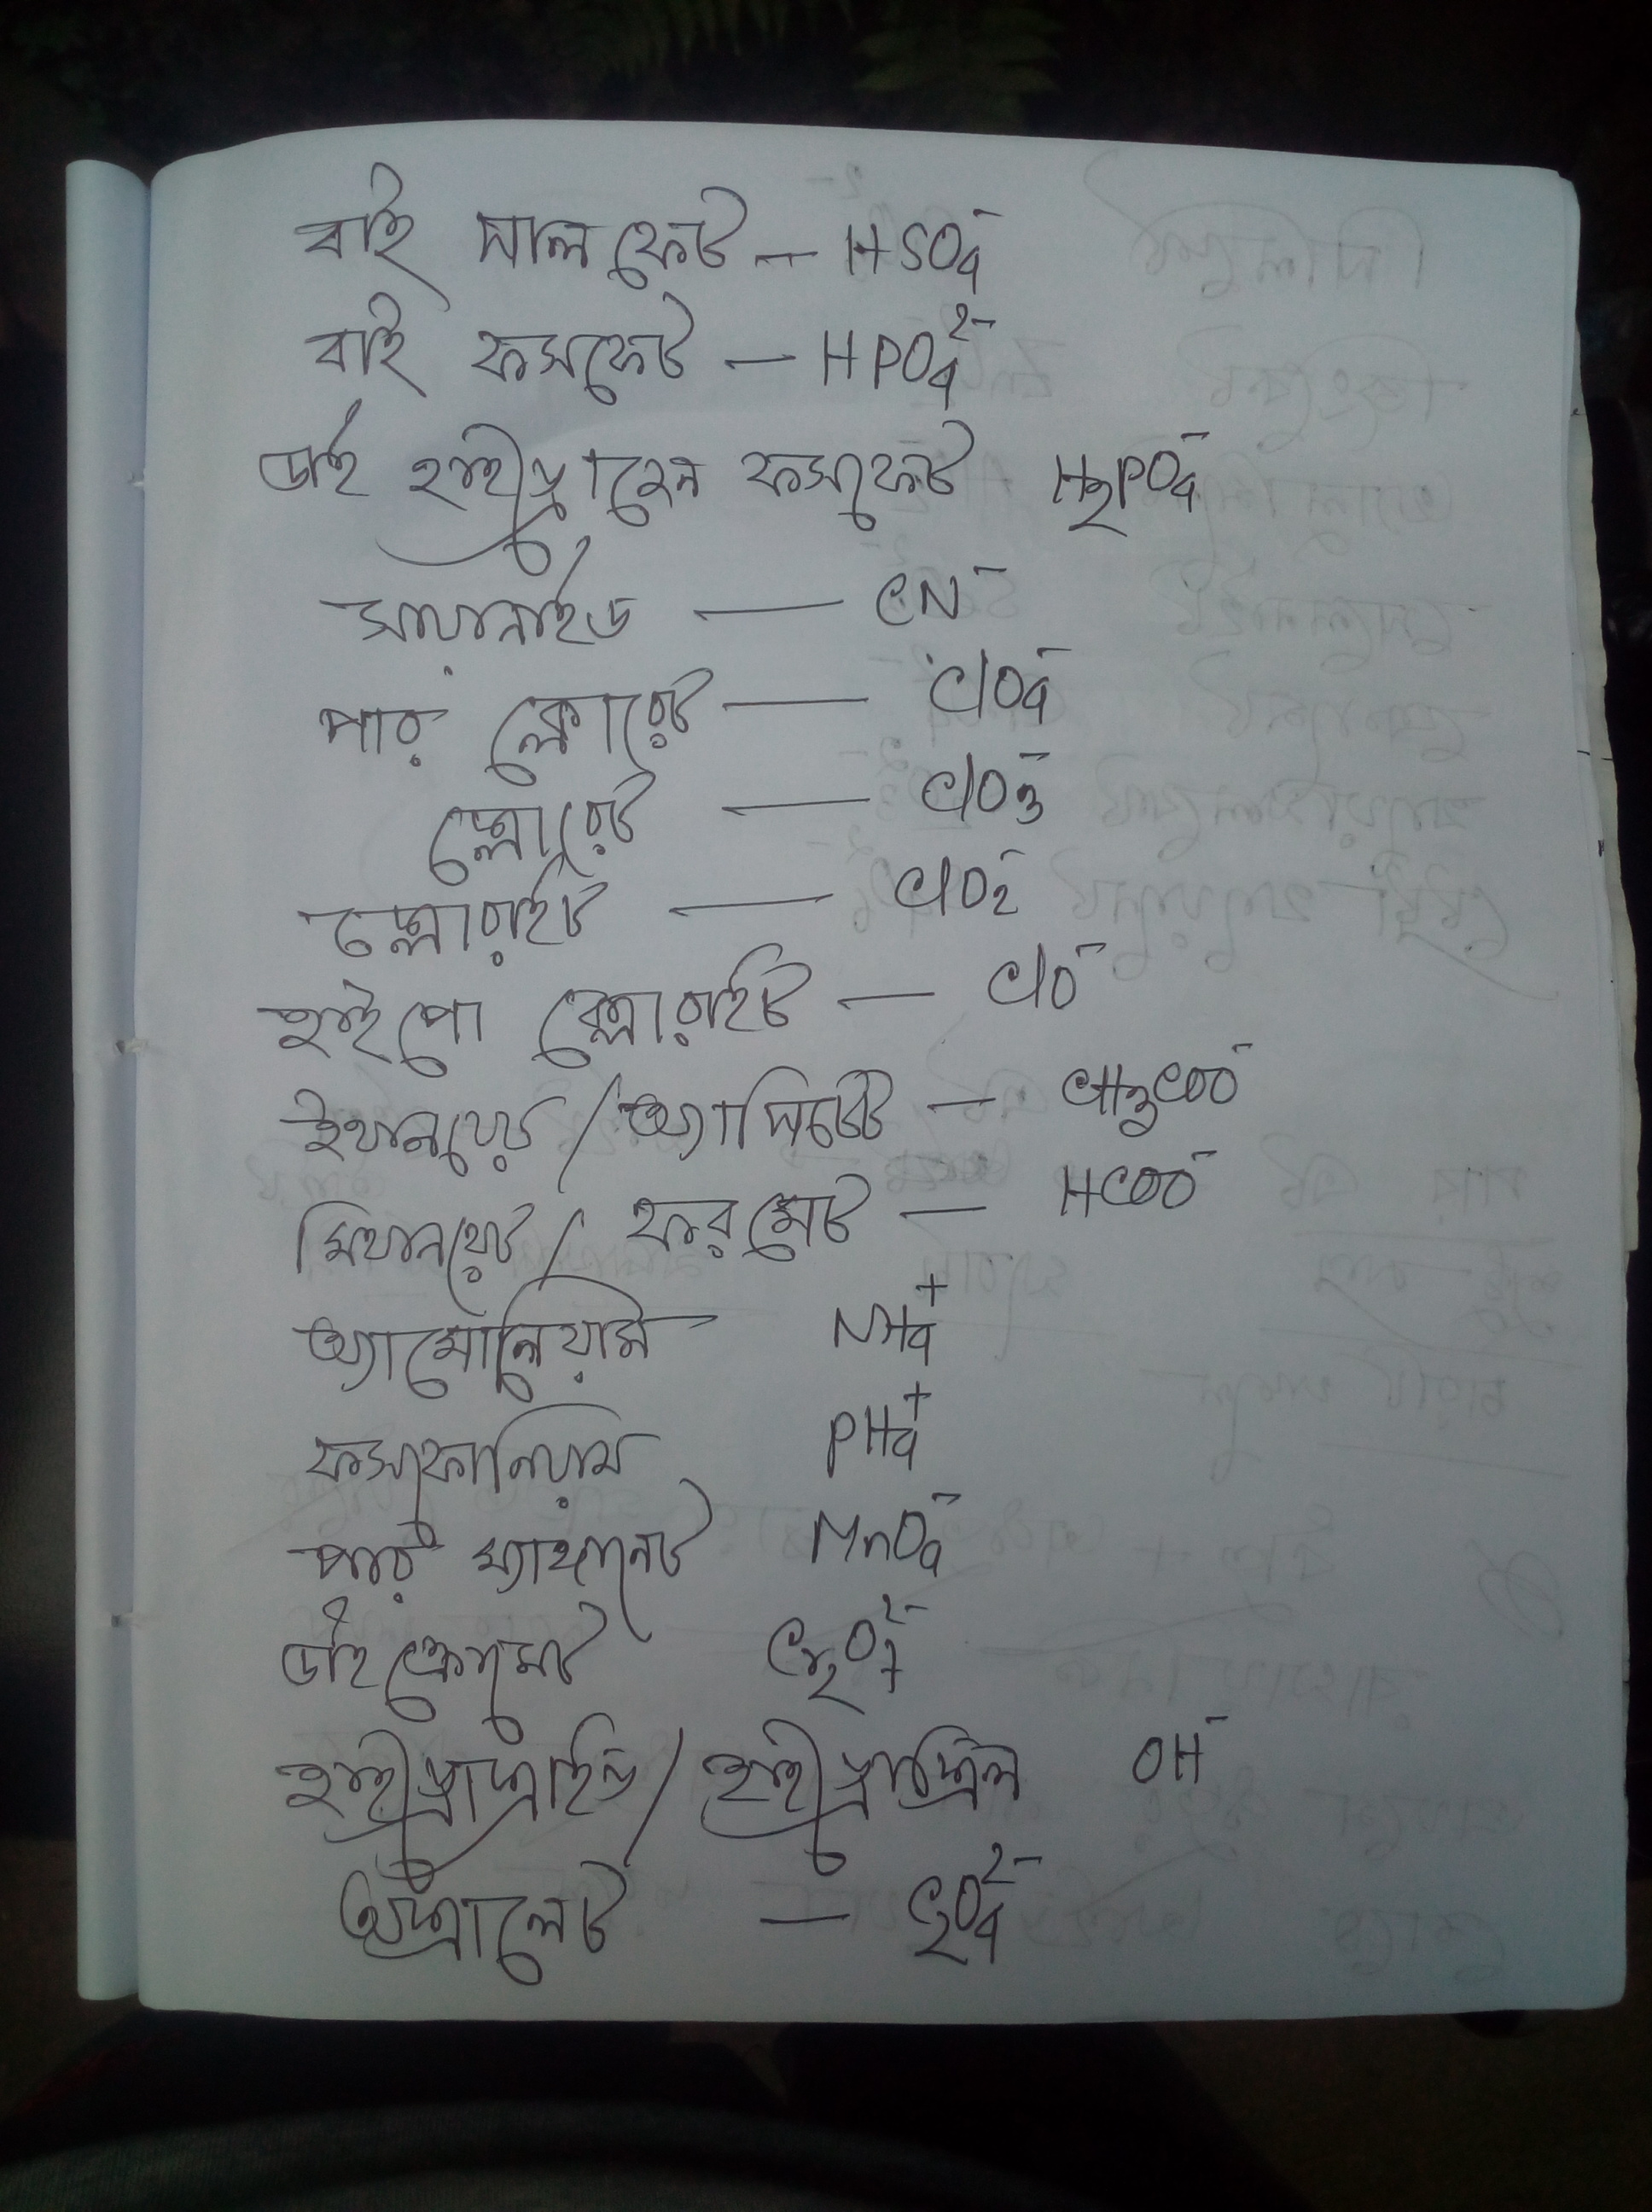 বাই সালফেট — HSO₄⁻
বাই ফসফেট — HPO₄²⁻
ডাই হাইড্রোজেন ফসফেট H₂PO₄⁻
সায়ানাইড — CN⁻
পার ক্লোরেট — ClO₄⁻
ক্লোরেট — ClO₃⁻
ক্লোরাইট — ClO₂⁻
হাইপো ক্লোরাইট — ClO⁻
ইথানয়েট / অ্যাসিটেট — CH₃COO⁻
মিথানয়েট / ফরমেট — HCOO⁻
অ্যামোনিয়াম NH₄⁺
ফসফোনিয়াম PH₄⁺
পার ম্যাঙ্গানেট MnO₄⁻
ডাই ক্রোমেট Cr₂O₇²⁻
হাইড্রোক্সাইড / হাইড্রোক্সিল OH⁻
অক্সালেট — C₂O₄²⁻